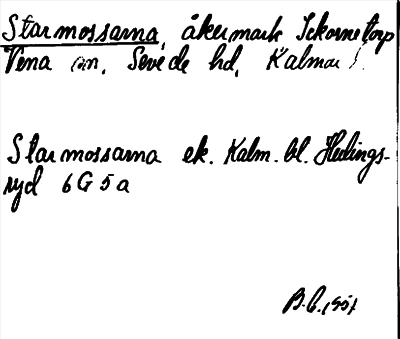 Starmossarna, åkermark Ickornetorp
Vena sn, Sevede hd, Kalmar l.
Starmossarna ek. Kalm. bl. Hulings-
ryd 6G5a